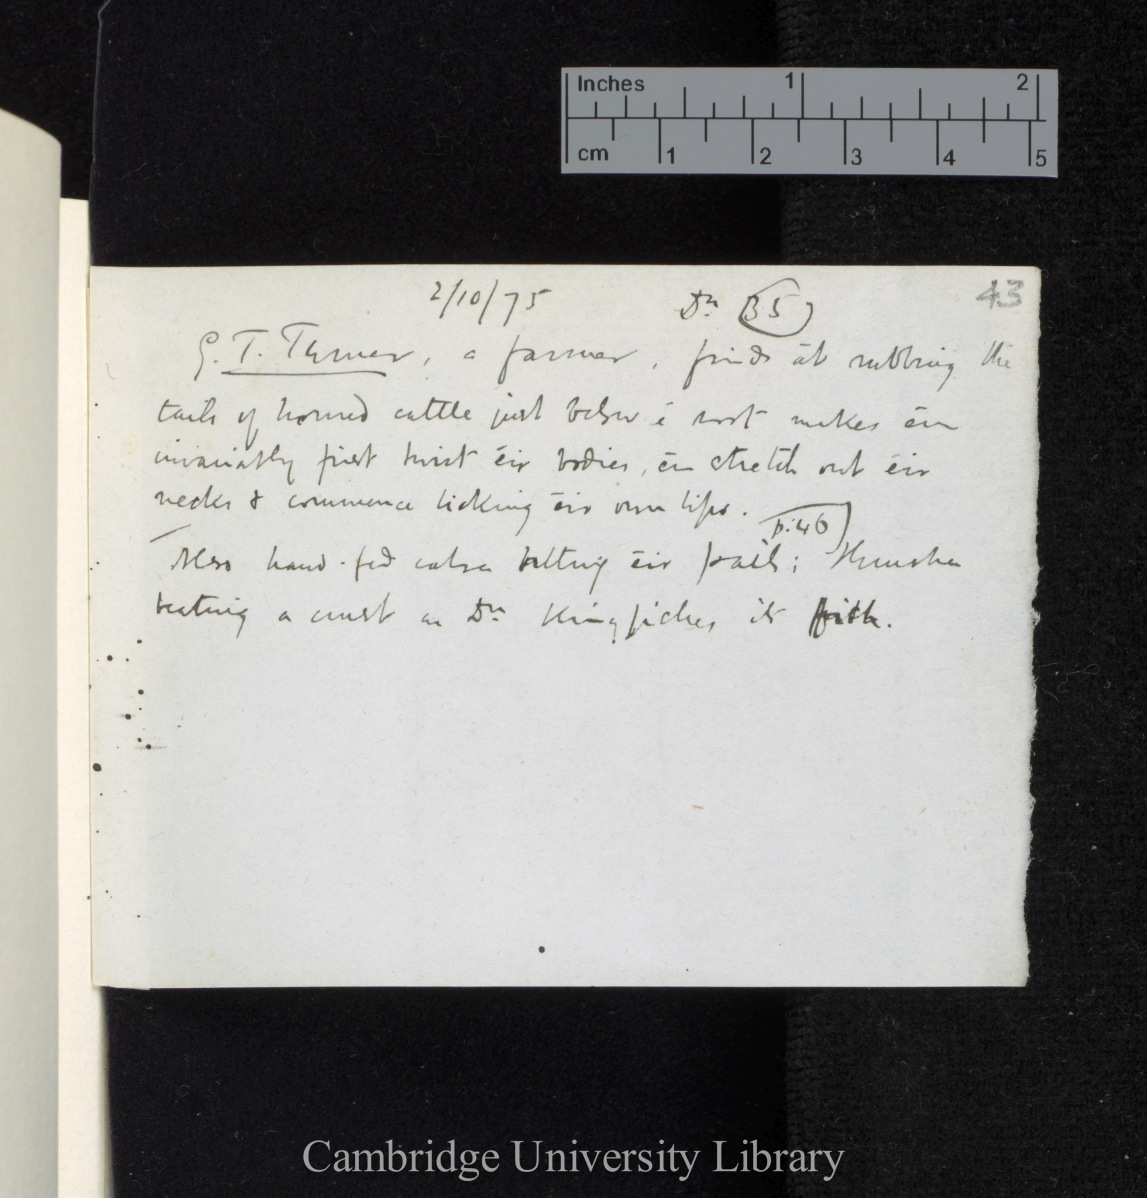 Inches 1 2
cm 1 2 3 4 5
2/10/75 Dn 35 43
G. T. Turner, a farmer, finds āt rubbing the
tails of horned cattle just below ē root makes ēm
invariably first twist ēir bodies, ēn stretch out ēir
necks & commence licking ēir own lips.
p. 46
Also hand-fed calves butting ēir pails; Thrushes
beating a crust as Dn Kingfishes its fish.
Cambridge University Library